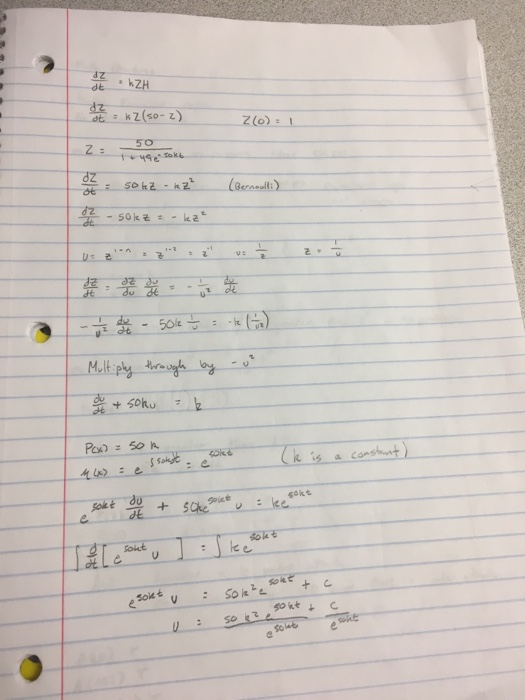 dZ/dt = kZH
dZ/dt = kZ(50-Z)    Z(0) = 1
Z = 50/(1 + 49e^-50kt)
dZ/dt = 50kZ - kZ²    (Bernoulli)
dZ/dt - 50kZ = -kZ²
U = z^1-n = z^1-2 = z^-1    U = 1/z    z = 1/u
dz/dt = dz/du du/dt = -1/u² du/dt
-1/u² du/dt - 50k 1/u = -k(1/u²)
Multiply through by -u²
du/dt + 50ku = k
P(x) = 50k
μ(x) = e^∫50kdt = e^50kt    (k is a constant)
e^50kt du/dt + 50ke^50kt u = ke^50kt
∫ d/dt [e^50kt u] = ∫ke^50kt
e^50kt u = 50k²e^50kt + c
U = 50k²e^50kt/e^50kt + c/e^50kt